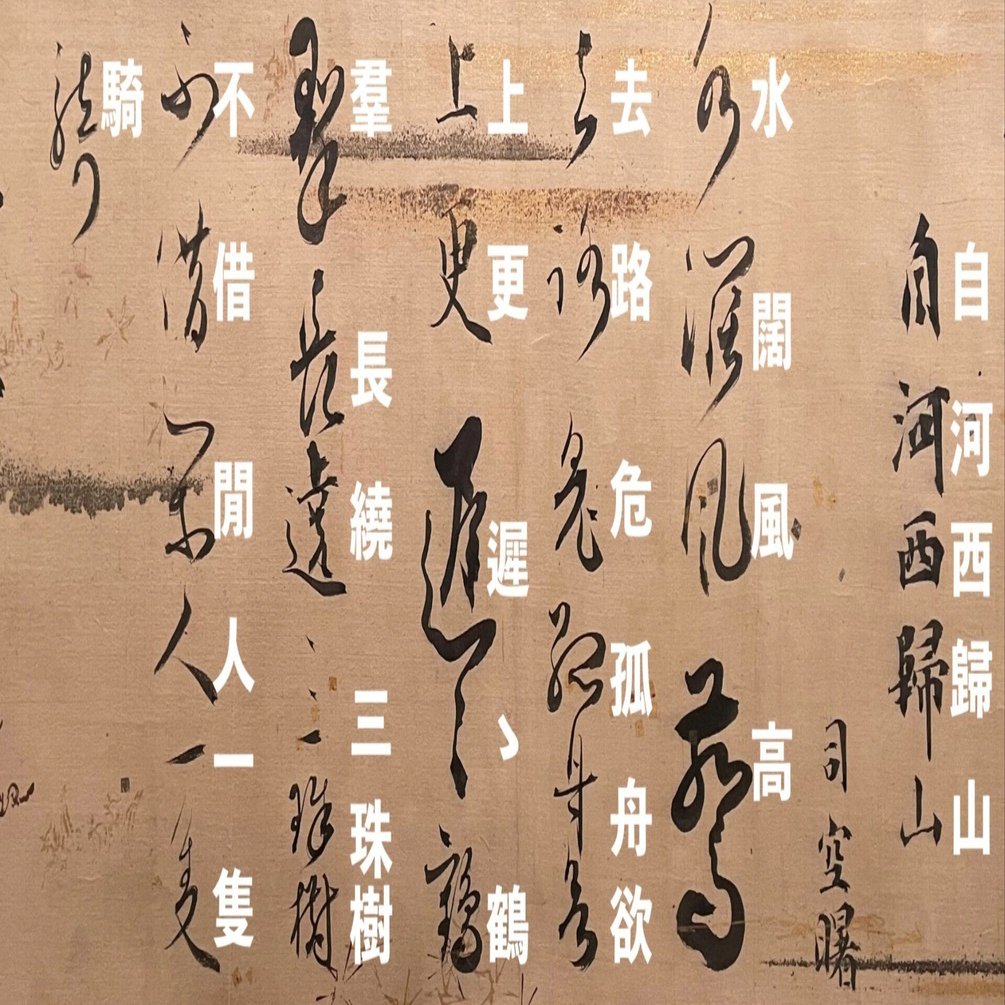 自河西歸山
司空曙
水闊風高
去路危孤舟欲
上更遲ゝ鶴
羣長繞三珠樹
不借閒人一隻
騎